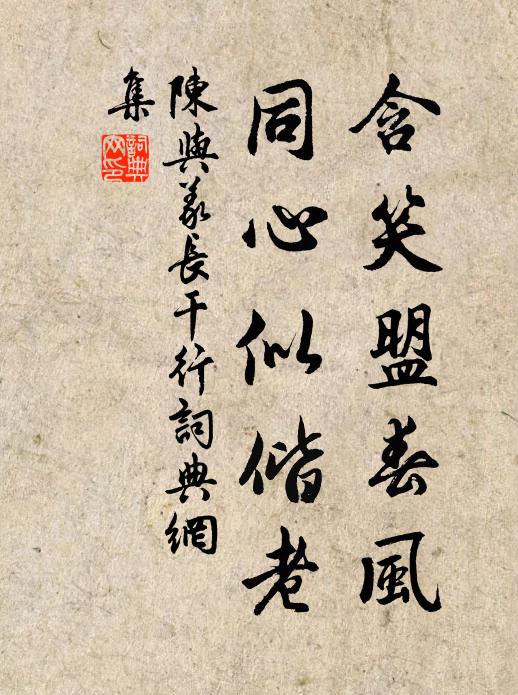 含笑盟春風
同心似偕老
陳與義長干行詞典網
集
詞典
网印